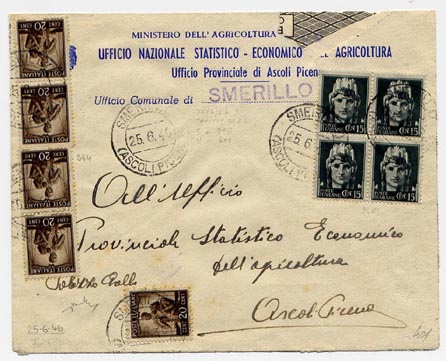 MINISTERO DELL'AGRICOLTURA
UFFICIO NAZIONALE STATISTICO - ECONOMICO DELL AGRICOLTURA
Ufficio Provinciale di Ascoli Piceno
Ufficio Comunale di SMERILLO
SMERILLO
25.6.46
(ASCOLI PICENO)
20 CENT
POSTE ITALIANE
20 CENT
POSTE ITALIANE
20 CENT
POSTE ITALIANE
20 CENT
POSTE ITALIANE
POSTE ITALIANE
20 CENT
CEN. 15
CEN. 15
CEN. 15
CEN. 15
All'Ufficio
Provinciale Statistico Economico
dell'agricoltura
Ascoli Piceno
25-6-46